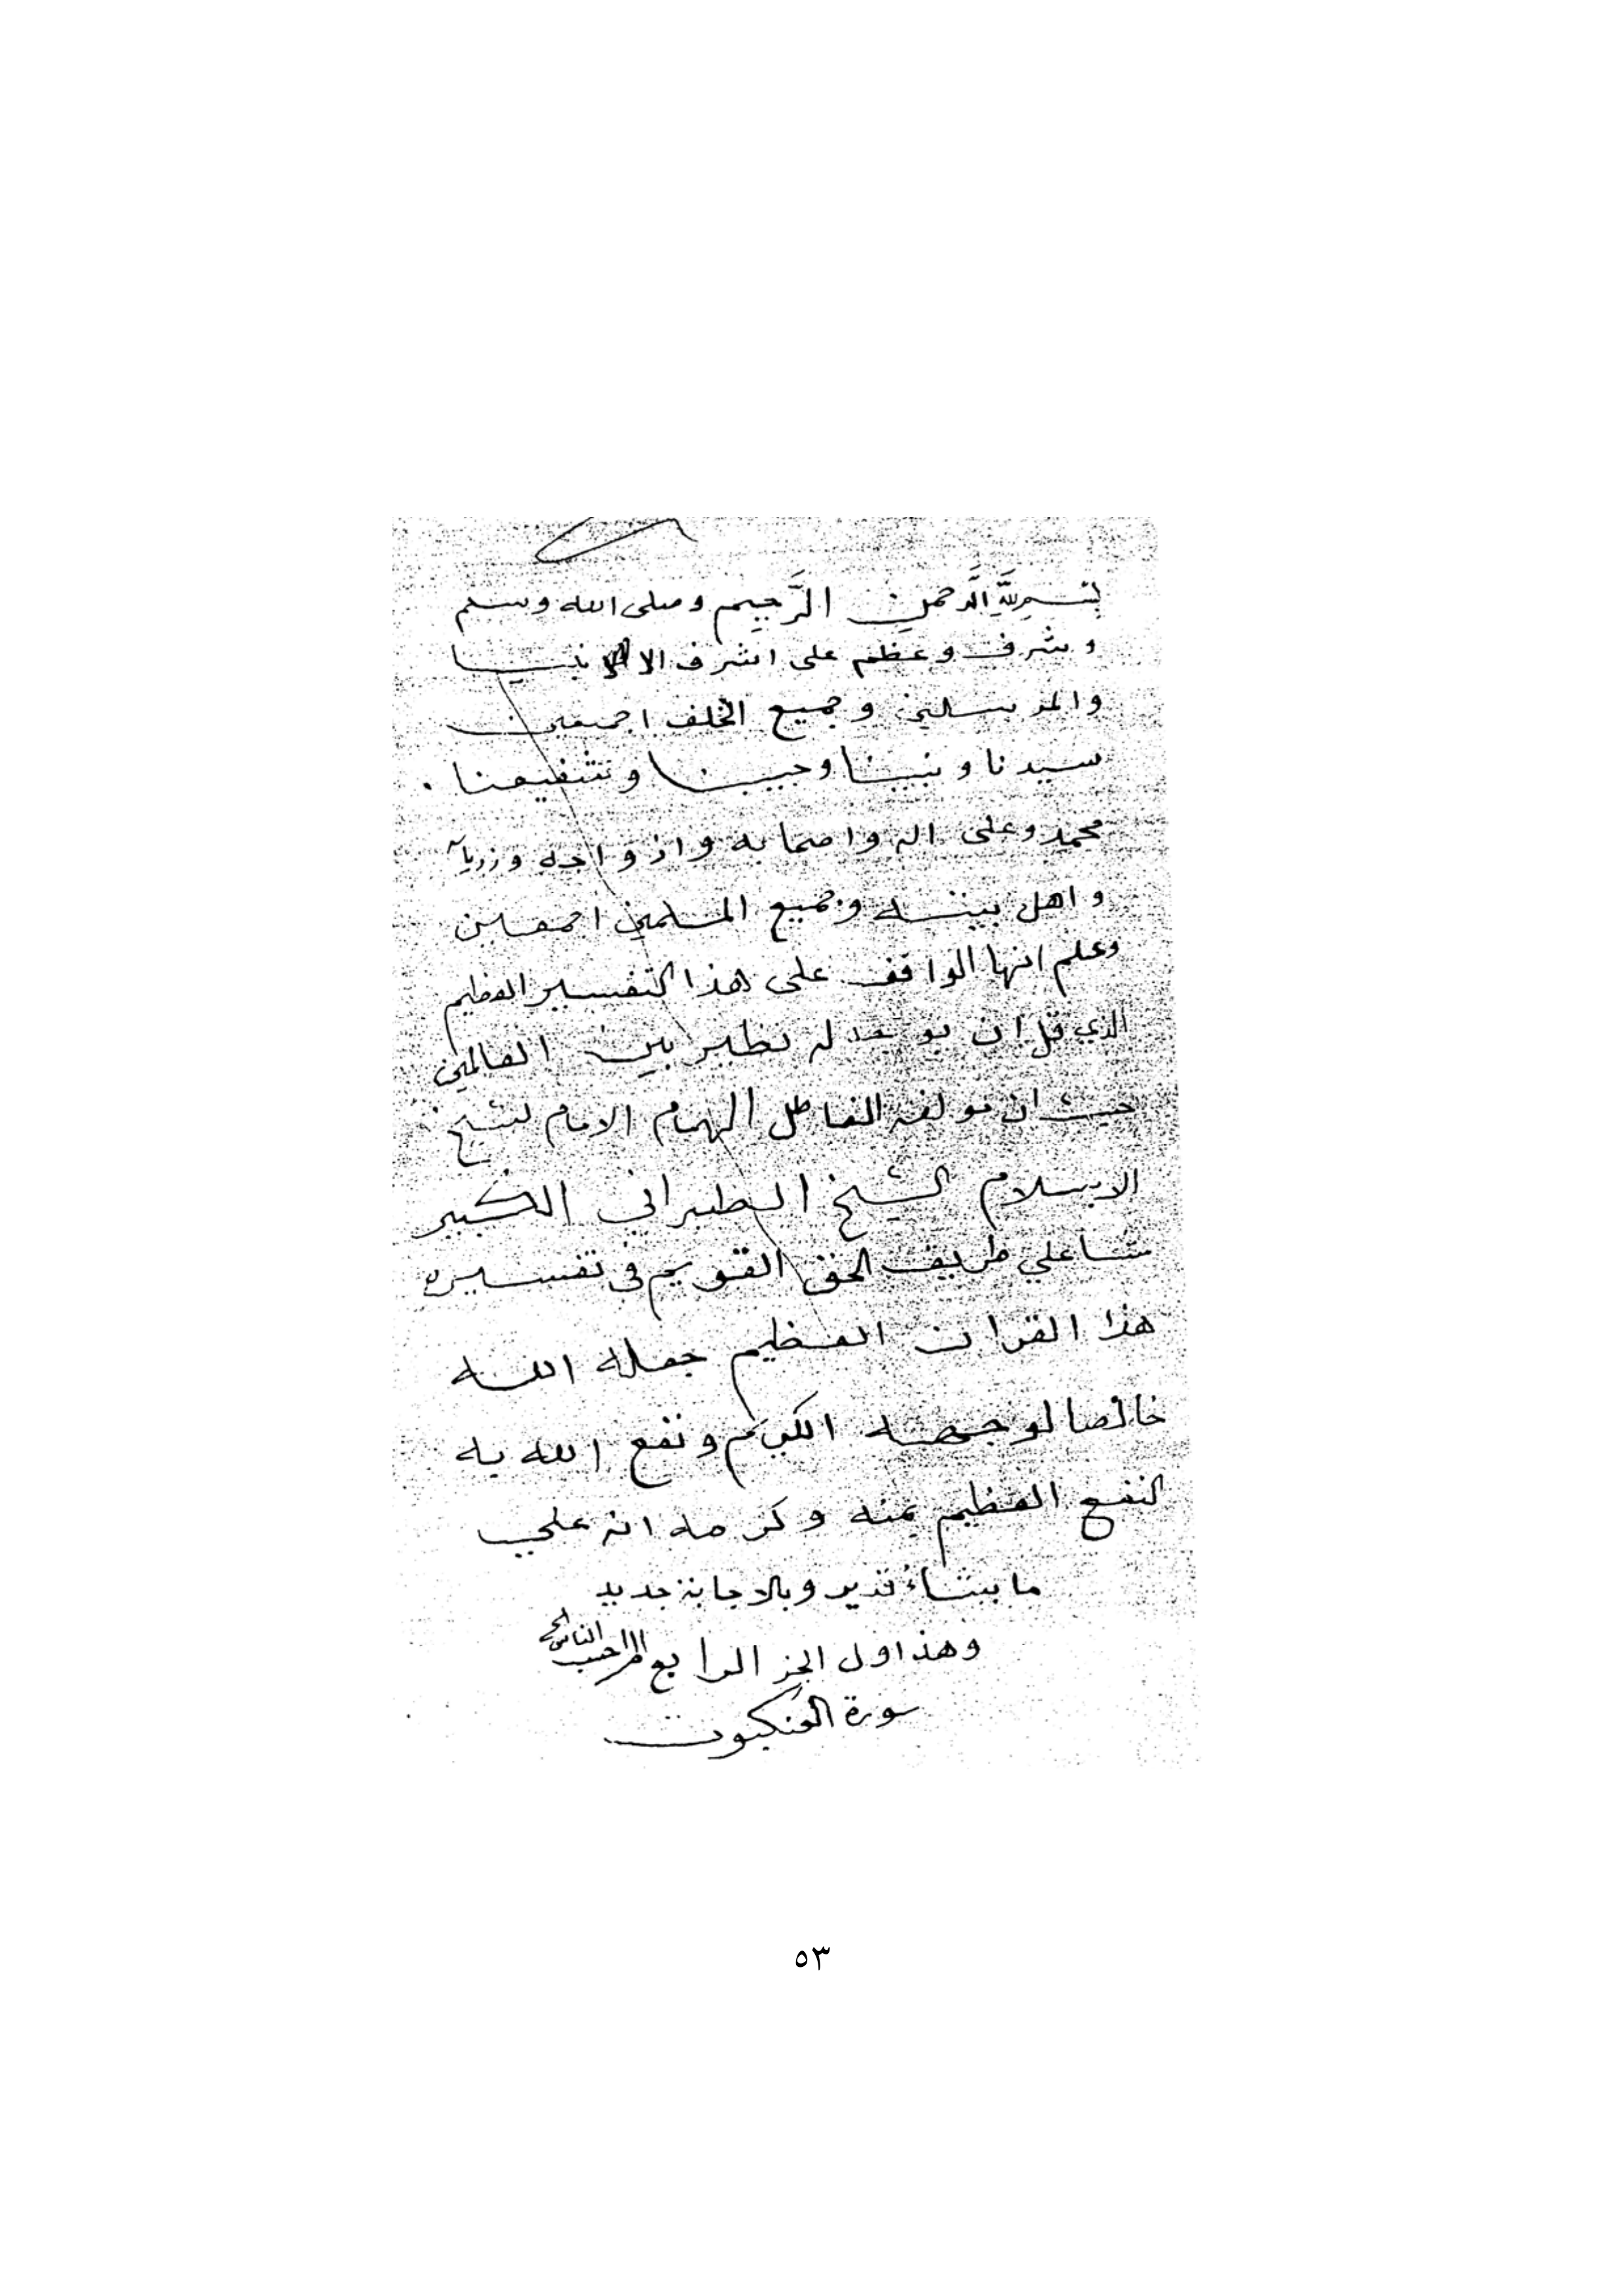 بِسْمِ اللَّهِ الرَّحمن الرَّحِيم وصلى الله وسلم
وشرف وعظم على اشرف الانبيا
والمرسلين وجميع الخلق اجمعين
سيدنا ونبينا وحبيبنا وشفيعنا
محمد وعلى اله واصحابه وازواجه
واهل بيته وجميع المسلمين اجمعين
وعلم ايها الواقف على هذا التفسير العظيم
الذي قل ان يوجد له نظير بين العالمين
حيث ان مولفه الفاضل الهمام الامام لشيخ
الاسلام الشيخ الطبراني الكبير
مشا علي طريق الحق القويم في تفسيره
هذا القران العظيم جعله الله
خالصا لوجهه الكريم ونفع الله به
النفع العظيم بمنه وكرمه انه علي
ما يشاء قدير وبالاجابة جدير
وهذا اول الجز الرابع
سورة العنكبوت
٥٣